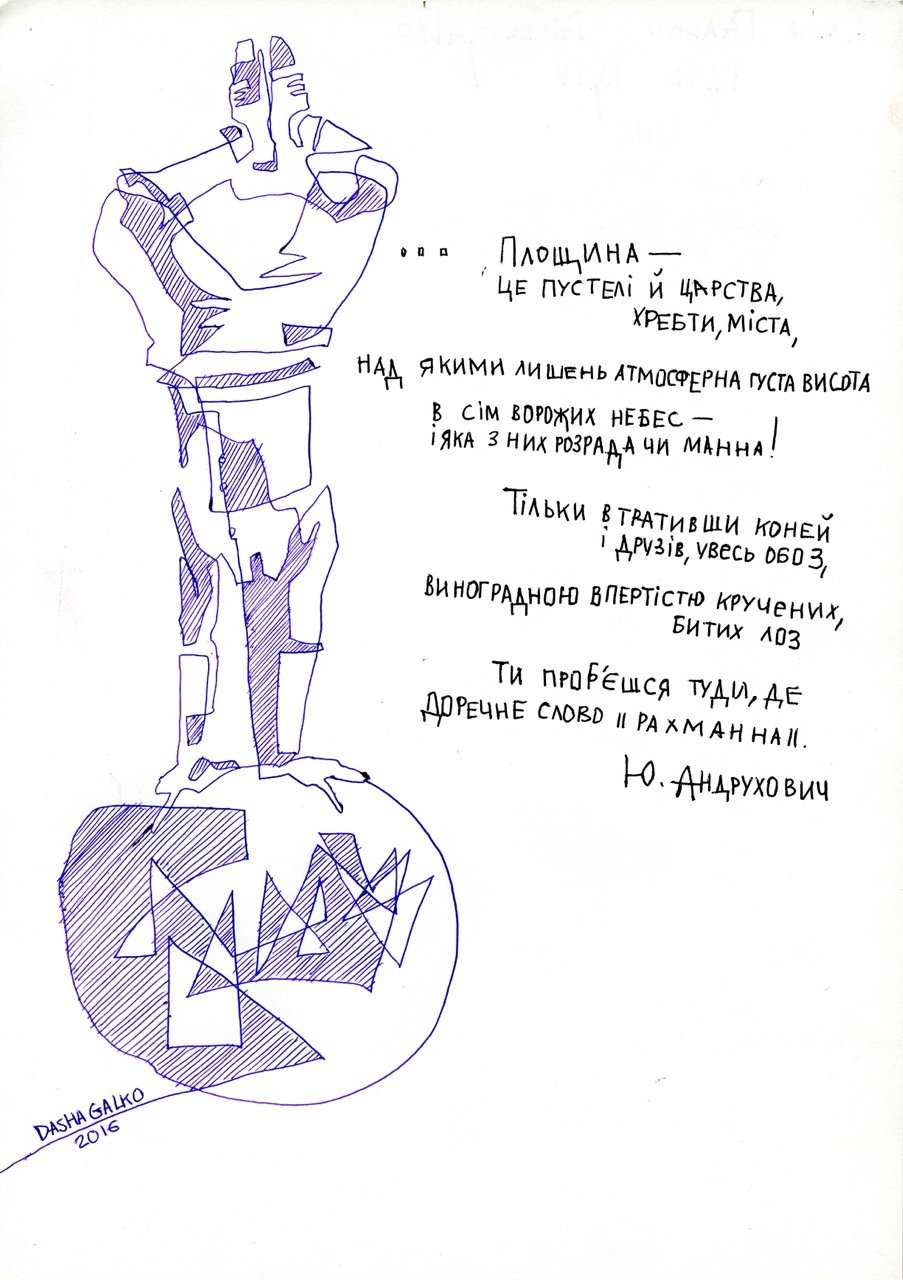 ... Площина —
це пустелі й царства,
хребти, міста,
над якими лишень атмосферна густа висота
в сім ворожих небес —
і яка з них розрада чи манна!
Тільки втративши коней
і друзів, увесь обоз,
виноградною впертістю кручених,
битих лоз
Ти проб'єшся туди, де
доречне слово "рахманна".
Ю. Андрухович
DASHA GALKO
2016